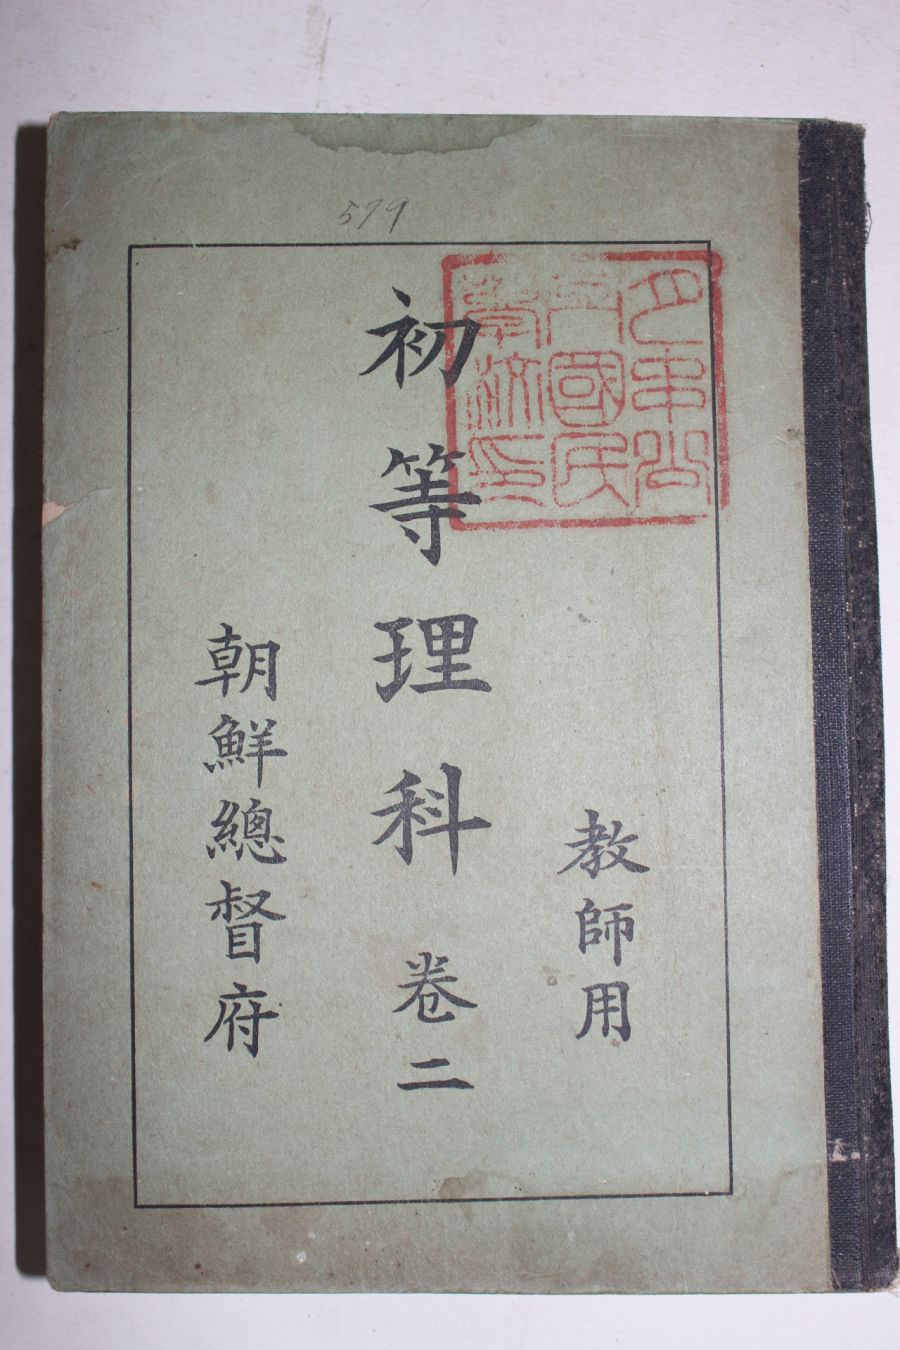 579
教師用
初等理科 卷二
朝鮮總督府